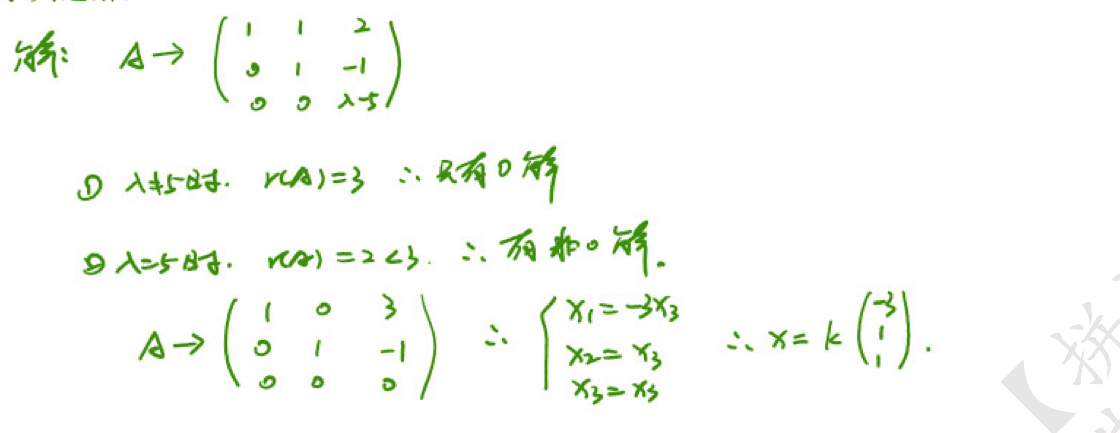 解: A→ ( 1 1 2
0 1 -1
0 0 λ-5 )
① λ≠5时. r(A)=3 ∴ 只有0解
② λ=5时. r(A)=2<3. ∴ 有非0解.
A→ ( 1 0 3
0 1 -1
0 0 0 ) ∴ { x₁=-3x₃
x₂=x₃
x₃=x₃ ∴ x=k (-3
1
1).
【拼